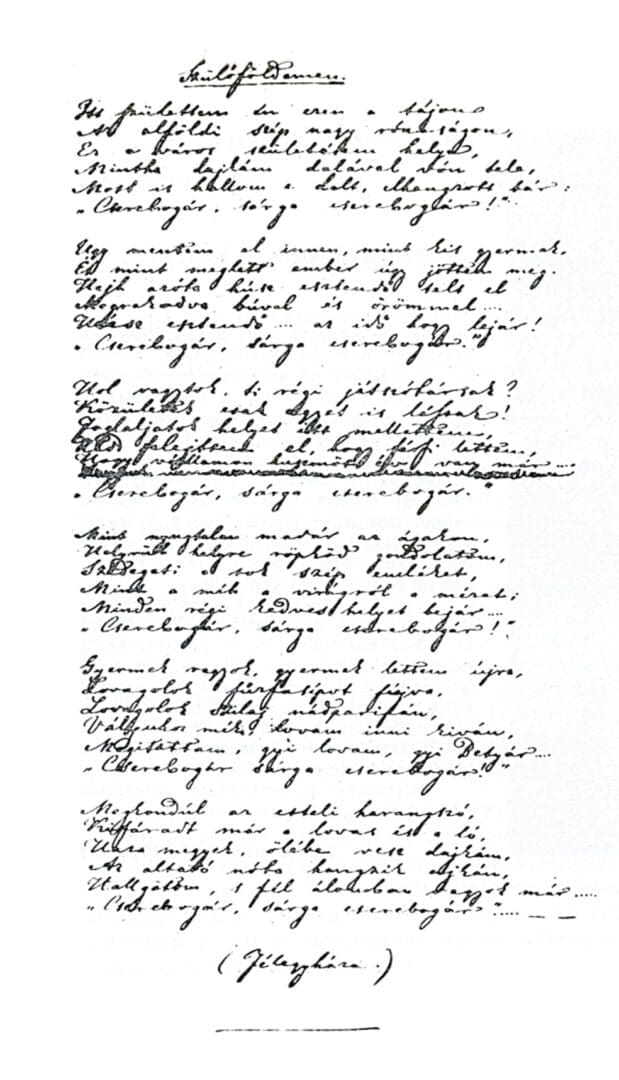 Szülőföldemen.
Itt születtem én ezen a tájon
Az alföldi szép nagy rónaságon,
Ez a város születésem helye,
Mintha dajkám dalával vón tele,
Most is hallom e dalt, elhangzott bár:
„Cserebogár, sárga cserebogár!”
Ugy mentem el innen, mint kis gyermek,
És mint meglett ember úgy jöttem meg.
Hejh azóta húsz esztendő telt el
Megrakodva búval és örömmel....
Húsz esztendő.... az idő hogy lejár!
„Cserebogár, sárga cserebogár.”
Hol vagytok, ti régi játszótársak?
Közületek csak egyet is lássak!
Foglaljatok helyet itt mellettem,
Hadd felejtsem el, hogy férfi lettem,
Hogy vállamon huszonöt év van már....
„Cserebogár, sárga cserebogár.”
Mint nyugtalan madár az ágakon,
Helyrül helyre röpköd gondolatom,
Szedegeti a sok szép emléket,
Mint a méh a virágról a mézet;
Minden régi kedves helyet bejár....
„Cserebogár, sárga cserebogár!”
Gyermek vagyok, gyermek lettem újra,
Lovagolok fűzfasípot fújva,
Lovagolok szilaj nádparipán,
Vályuhoz mék, lovam inni kiván,
Megitattam, gyi lovam, gyi Betyár....
„Cserebogár sárga cserebogár!”
Megkondúl az esteli harangszó,
Kifáradt már a lovas és a ló,
Haza megyek, ölébe vesz dajkám,
Az altató nóta hangzik ajkán,
Hallgatom, s fél álomban vagyok már.....
„Cserebogár, sárga cserebogár”..... _ _
(Félegyháza.)